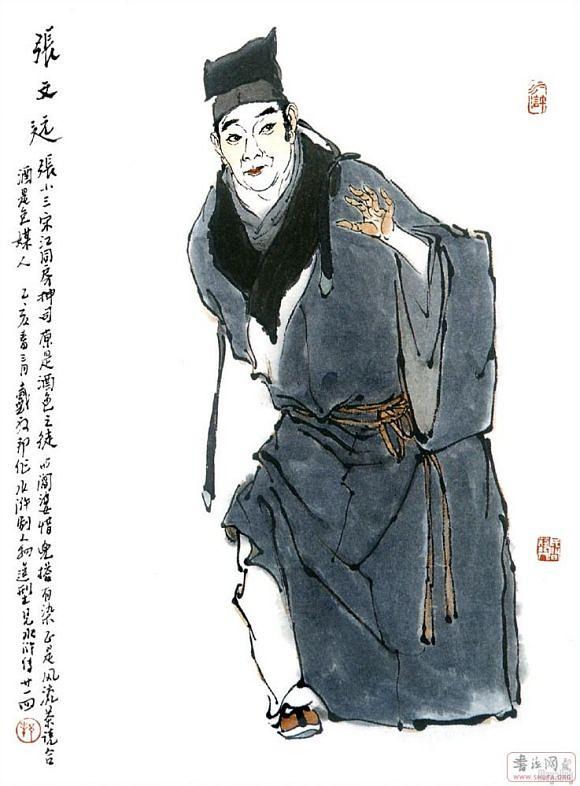 張文远
張小三宋江同房押司原是酒色之徒与閻婆惜兒搭有染正是风流茶说合
酒是色媒人 乙亥春三月戴敦邦作水滸剧人物造型見水滸传廿一回
書法网
WWW.SHUFA.ORG